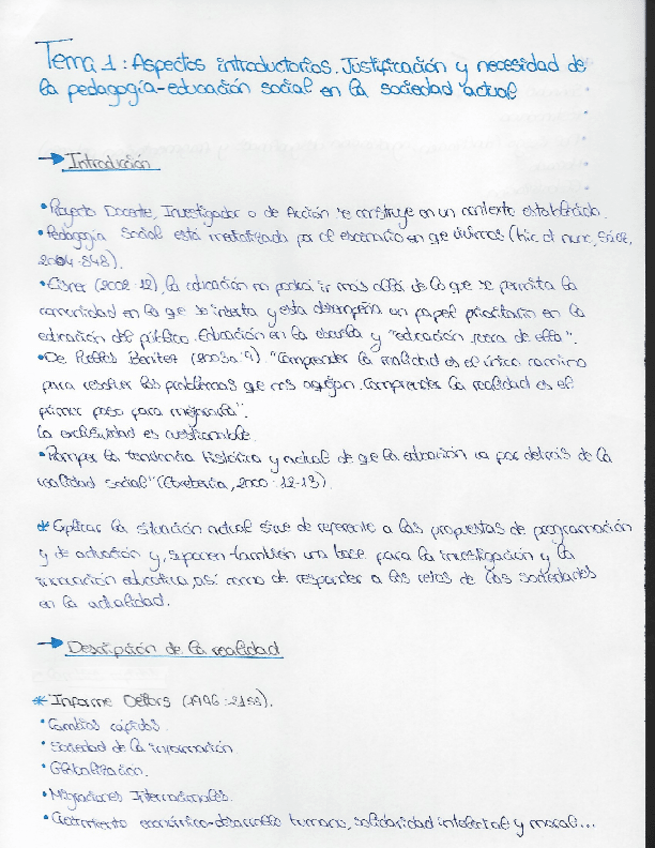 Tema 1: Aspectos introductorios. Justificación y necesidad de
la pedagogía-educación social en la sociedad actual
→ Introducción
• Proyecto Docente, Investigador o de Acción se construye en un contexto establecido.
• Pedagogía Social está mediatizada por el escenario en qe vivimos (hic et nunc, Sáez,
2004:848).
• Eisner (2002:12), la educación no podrá ir más allá de lo qe se permita la
comunidad en la qe se inserta y esta desempeña un papel prioritario en la
educación del público. Educación en la escuela y "educación fuera de ella".
• De Puelles Benítez (2003a:9) "Comprender la realidad es el único camino
para resolver los problemas qe nos aquejan. Comprender la realidad es el
primer paso para mejorarla".
La exclusividad es cuestionable.
• Romper la tendencia histórica y actual de qe la educación va por detrás de la
realidad social" (Etxeberria, 2000:12-13).
* Explicar la situación actual sirve de referente a las propuestas de programación
y de actuación y, suponen también una base para la investigación y la
innovación educativa, así como de responder a los retos de las sociedades
en la actualidad.
→ Descripción de la realidad
* Informe Delors (1996:
• Cambios rápidos.
• Sociedad de la información
• Globalización.
• Migraciones Internacionales.
• Crecimiento económico-desarrollo humano, solidaridad intelectual y moral...